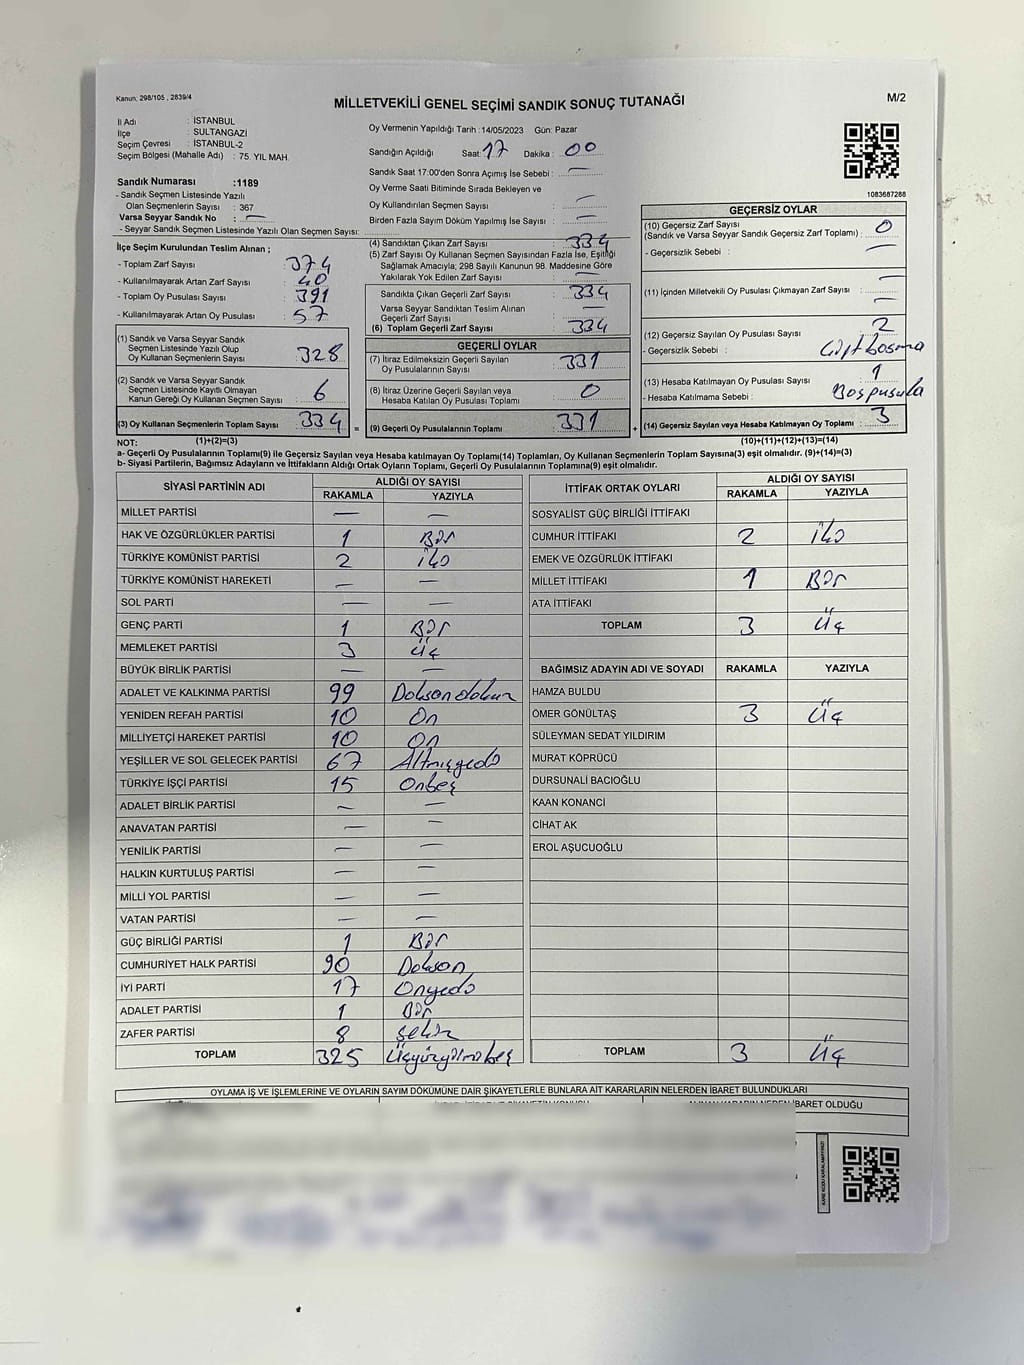 Kanun: 298/105 , 2839/4
MİLLETVEKİLİ GENEL SEÇİMİ SANDIK SONUÇ TUTANAĞI
M/2
İl Adı : İSTANBUL
İlçe : SULTANGAZİ
Seçim Çevresi : İSTANBUL-2
Seçim Bölgesi (Mahalle Adı) : 75. YIL MAH.
Sandık Numarası :1189
- Sandık Seçmen Listesinde Yazılı
Olan Seçmenlerin Sayısı : 367
Varsa Seyyar Sandık No : —
- Seyyar Sandık Seçmen Listesinde Yazılı Olan Seçmen Sayısı:
İlçe Seçim Kurulundan Teslim Alınan ;
- Toplam Zarf Sayısı : 374
- Kullanılmayarak Artan Zarf Sayısı : 40
- Toplam Oy Pusulası Sayısı : 391
- Kullanılmayarak Artan Oy Pusulası : 57
(1) Sandık ve Varsa Seyyar Sandık
Seçmen Listesinde Yazılı Olup
Oy Kullanan Seçmenlerin Sayısı : 328
(2) Sandık ve Varsa Seyyar Sandık
Seçmen Listesinde Kayıtlı Olmayan
Kanun Gereği Oy Kullanan Seçmen Sayısı : 6
(3) Oy Kullanan Seçmenlerin Toplam Sayısı : 334
Oy Vermenin Yapıldığı Tarih :14/05/2023 Gün: Pazar
Sandığın Açıldığı Saat: 17 Dakika : 00
Sandık Saat 17:00'den Sonra Açımış İse Sebebi : —
Oy Verme Saati Bitiminde Sırada Bekleyen ve
Oy Kullandırılan Seçmen Sayısı : —
Birden Fazla Sayım Döküm Yapılmış İse Sayısı : —
(4) Sandıktan Çıkan Zarf Sayısı : 334
(5) Zarf Sayısı Oy Kullanan Seçmen Sayısından Fazla İse, Eşitliği
Sağlamak Amacıyla; 298 Sayılı Kanunun 98. Maddesine Göre
Yakılarak Yok Edilen Zarf Sayısı : —
Sandıkta Çıkan Geçerli Zarf Sayısı : 334
Varsa Seyyar Sandıktan Teslim Alınan
Geçerli Zarf Sayısı : —
(6) Toplam Geçerli Zarf Sayısı : 334
GEÇERLİ OYLAR
(7) İtiraz Edilmeksizin Geçerli Sayılan
Oy Pusulalarının Sayısı : 331
(8) İtiraz Üzerine Geçerli Sayılan veya
Hesaba Katılan Oy Pusulası Toplamı : 0
= (9) Geçerli Oy Pusulalarının Toplamı : 331 +
1083687288
GEÇERSİZ OYLAR
(10) Geçersiz Zarf Sayısı
(Sandık ve Varsa Seyyar Sandık Geçersiz Zarf Toplamı) : 0
- Geçersizlik Sebebi : —
(11) İçinden Milletvekili Oy Pusulası Çıkmayan Zarf Sayısı : —
(12) Geçersiz Sayılan Oy Pusulası Sayısı : 2
- Geçersizlik Sebebi : Çift basma
(13) Hesaba Katılmayan Oy Pusulası Sayısı : 1
- Hesaba Katılmama Sebebi : Boş pusula
(14) Geçersiz Sayılan veya Hesaba Katılmayan Oy Toplamı : 3
NOT: (1)+(2)=(3) (10)+(11)+(12)+(13)=(14)
a- Geçerli Oy Pusulalarının Toplam(9) ile Geçersiz Sayılan veya Hesaba katılmayan Oy Toplam(14) Toplamları, Oy Kullanan Seçmenlerin Toplam Sayısına(3) eşit olmalıdır. (9)+(14)=(3)
b- Siyasi Partilerin, Bağımsız Adayların ve İttifakların Aldığı Ortak Oyların Toplamı, Geçerli Oy Pusulalarının Toplamına(9) eşit olmalıdır.
SİYASİ PARTİNİN ADI ALDIĞI OY SAYISI
RAKAMLA YAZIYLA
MİLLET PARTİSİ — —
HAK VE ÖZGÜRLÜKLER PARTİSİ 1 Bir
TÜRKİYE KOMÜNİST PARTİSİ 2 iki
TÜRKİYE KOMÜNİST HAREKETİ — —
SOL PARTİ — —
GENÇ PARTİ 1 Bir
MEMLEKET PARTİSİ 3 Üç
BÜYÜK BİRLİK PARTİSİ — —
ADALET VE KALKINMA PARTİSİ 99 Doksan dokuz
YENİDEN REFAH PARTİSİ 10 On
MİLLİYETÇİ HAREKET PARTİSİ 10 On
YEŞİLLER VE SOL GELECEK PARTİSİ 67 Altmışyedi
TÜRKİYE İŞÇİ PARTİSİ 15 Onbeş
ADALET BİRLİK PARTİSİ — —
ANAVATAN PARTİSİ — —
YENİLİK PARTİSİ — —
HALKIN KURTULUŞ PARTİSİ — —
MİLLİ YOL PARTİSİ — —
VATAN PARTİSİ — —
GÜÇ BİRLİĞİ PARTİSİ 1 Bir
CUMHURİYET HALK PARTİSİ 90 Doksan
İYİ PARTİ 17 Onyedi
ADALET PARTİSİ 1 Bir
ZAFER PARTİSİ 8 Sekiz
TOPLAM 325 Üçyüzyirmibeş
İTTİFAK ORTAK OYLARI ALDIĞI OY SAYISI
RAKAMLA YAZIYLA
SOSYALİST GÜÇ BİRLİĞİ İTTİFAKI
CUMHUR İTTİFAKI 2 iki
EMEK VE ÖZGÜRLÜK İTTİFAKI
MİLLET İTTİFAKI 1 Bir
ATA İTTİFAKI
TOPLAM 3 Üç
BAĞIMSIZ ADAYIN ADI VE SOYADI RAKAMLA YAZIYLA
HAMZA BULDU
ÖMER GÖNÜLTAŞ 3 Üç
SÜLEYMAN SEDAT YILDIRIM
MURAT KÖPRÜCÜ
DURSUNALİ BACIOĞLU
KAAN KONANCİ
CİHAT AK
EROL AŞUCUOĞLU
TOPLAM 3 Üç
OYLAMA İŞ VE İŞLEMLERİNE VE OYLARIN SAYIM DÖKÜMÜNE DAİR ŞİKAYETLERLE BUNLARA AİT KARARLARIN NELERDEN İBARET BULUNDUKLARI
İBARET OLDUĞU